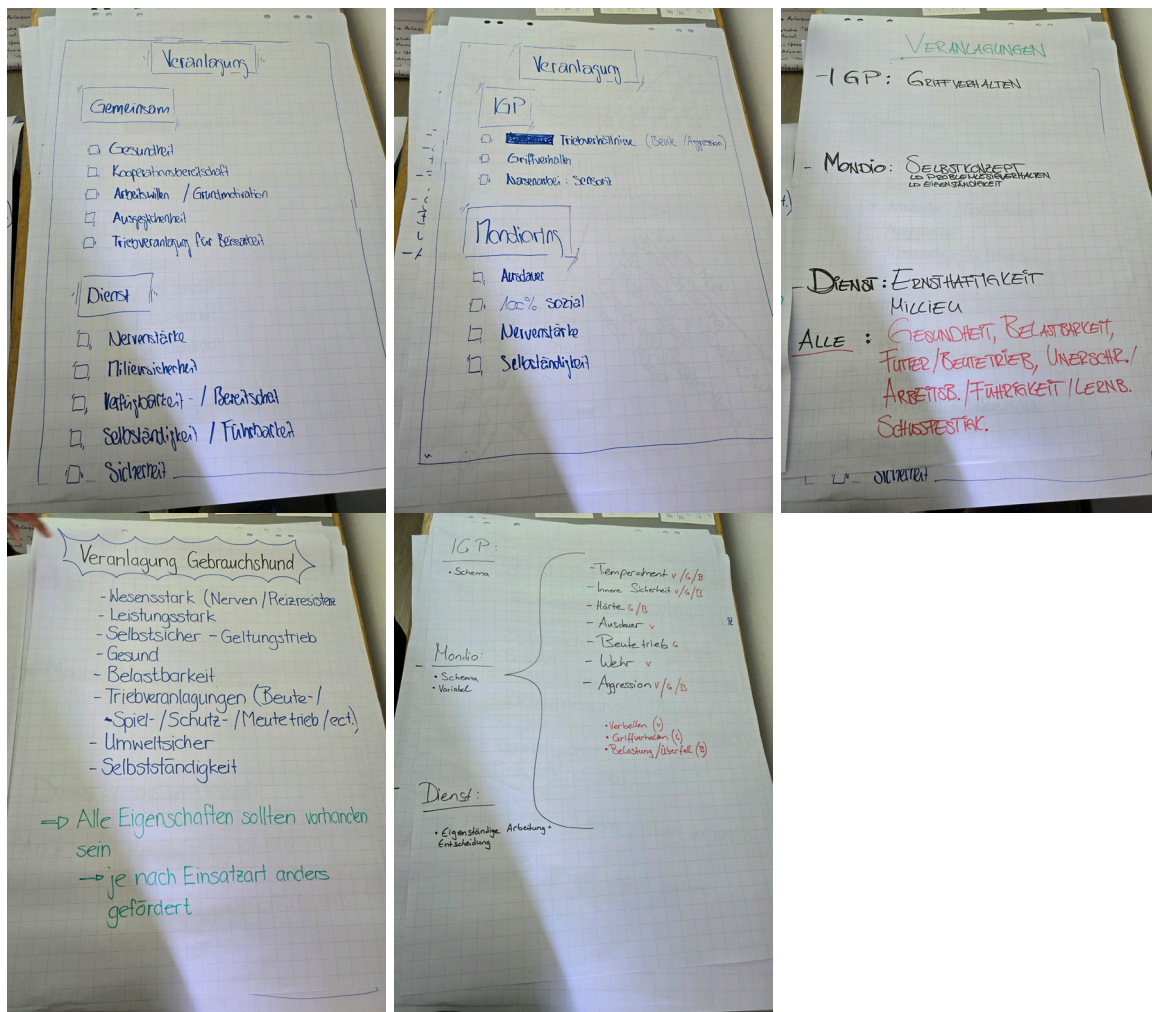 Veranlagung
Gemeinsam
Gesundheit
Kooperationsbereitschaft
Arbeitswillen / Grundmotivation
Ausgeglichenheit
Triebveranlagung für Beissarbeit
Dienst
Nervenstärke
Milieusicherheit
Verfügbarkeit - / Bereitschaf
Selbständigkeit / Führbarkeit
Sicherheit
Veranlagung
IGP
Triebverhältnisse (Beute / Aggression)
Griffverhalten
Nasenarbeit: Sensorik
Mondioring
Ausdauer
100% sozial
Nervenstärke
Selbständigkeit
VERANLAGUNGEN
- IGP: GRIFFVERHALTEN
- MONDIO: SELBSTKONZEPT
PROBLEMLÖSEVERHALTEN
EIGENSTÄNDIGKEIT
- DIENST: ERNSTHAFTIGKEIT
MILLIEU
ALLE : GESUNDHEIT, BELASTBARKEIT,
FUTTER/BEUTETRIEB, UNERSCHR./
ARBEITSB./FÜHRIGKEIT/LERNB.
SCHUSSFESTIGK.
Sicherheit
Veranlagung Gebrauchshund
- Wesensstark (Nerven / Reizresistenz
- Leistungsstark
- Selbstsicher - Geltungstrieb
- Gesund
- Belastbarkeit
- Triebveranlagungen (Beute-/
Spiel-/Schutz-/Meutetrieb/ect.)
- Umweltsicher
- Selbstständigkeit
⇒ Alle Eigenschaften sollten vorhanden
sein
→ je nach Einsatzart anders
gefördert
IGP:
• Schema
- Temperatment V/G/B
- Innere Sicherheit V/G/B
- Härte G/B
- Ausdauer V
- Beutetrieb G
- Wehr V
- Aggression V/G/B
- Mondio:
• Schema
• Variabel
• Verbellen (V)
• Griffverhalten (G)
• Belastung/Überfall (B)
- Dienst:
• Eigenständige Arbeitung +
Entscheidung